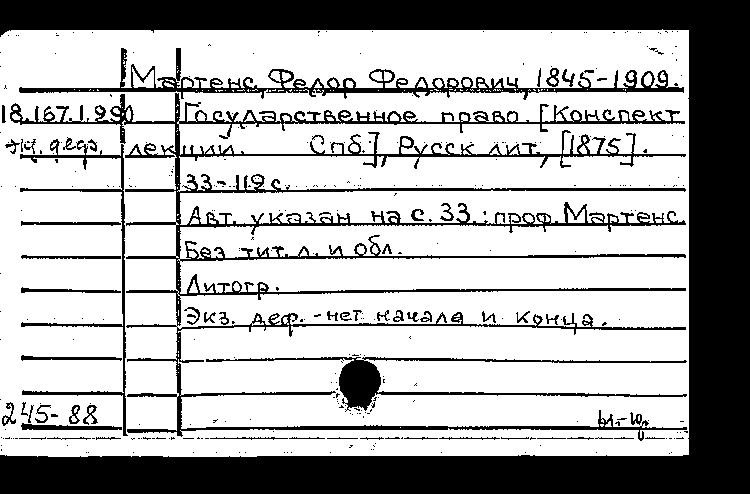 Мартенс, Федор Федорович, 1845-1909.
18.167.1.290 Государственное право. [Конспект
экз. деф. лекций. Спб.], Русск лит., [1875].
33-119 с.
Авт. указан на с. 33.: проф. Мартенс.
Без тит. л. и обл.
Литогр.
Экз. деф. - нет начала и конца.
245-88